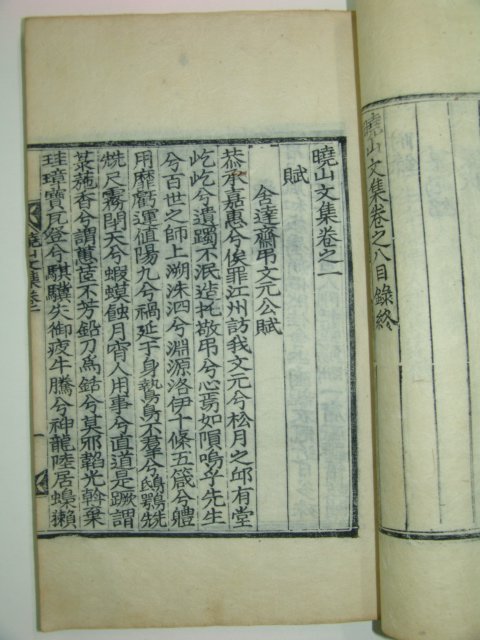 曉山文集卷之八目錄終
曉山文集卷之一
賦
舍達齋弔文元公賦
恭承嘉惠兮俟罪江州訪我文元兮松月之邱有堂
屹屹兮遺躅不泯造托敬弔兮心焉如隕嗚乎先生
兮百世之師上溯洙泗兮淵源洛伊十條五箴兮軆
用靡虧運值陽九兮禍延于身鷙鳥不羣兮鴟鴞兟
兟尺霧閉天兮蝦蟆蝕月宵人用事兮直道是蹶謂
菉葹香兮謂蕙茝不芳鉛刀爲銛兮莫邪韜光斡棄
珪璋寶瓦登兮騏驥失御疲牛騰兮神龍陸居蟂獺
曉山文集卷一